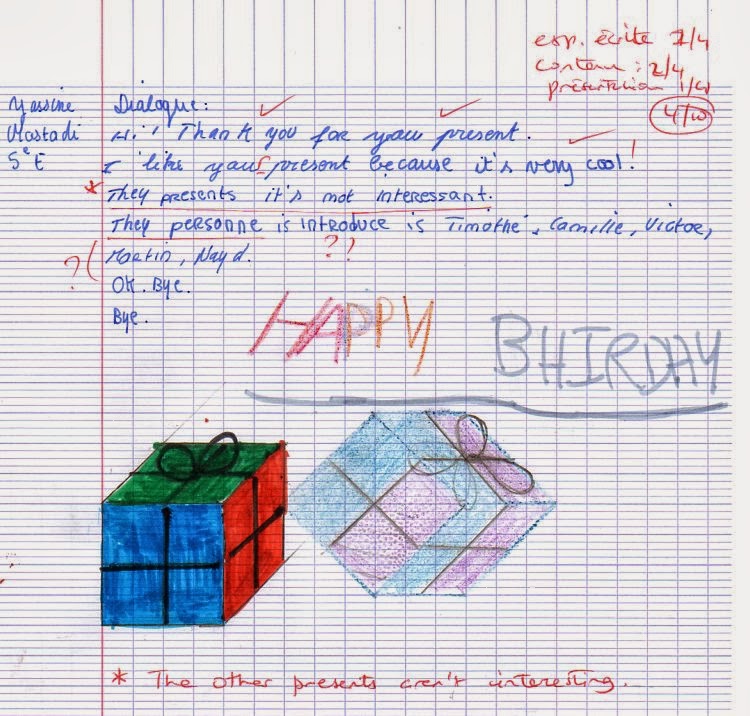 esp. écrite 1/4
contenu : 2/4
présentation 1/2
4/10
Yassine
Mostadi
5e E
Dialogue:
Hi! Thank you for your present.
I like your present because it's very cool!
* They presents it's not interessant.
They personne is introduce is Timothé, Camilie, Victor,
?( Martin, Nayd. ??
OK. Bye.
Bye.
HAPPY BHIRDAY
* The other presents aren't interesting.